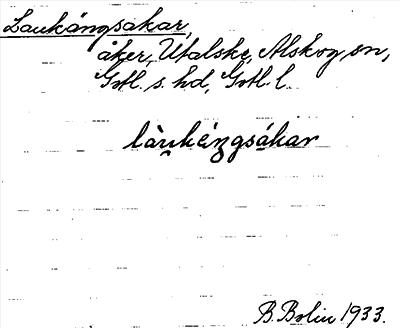 Laukängsakar,
åker, Utalske, Alskog sn,
Gotl. s. hd, Gotl. l.
làu̯kéngsákar
B. Bolin 1933.